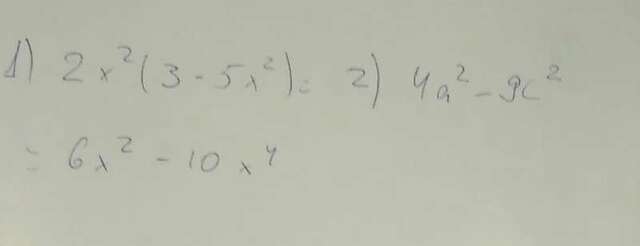 1) 2x²(3-5x²)= 2) 4a²-9c²
= 6x² - 10x⁴